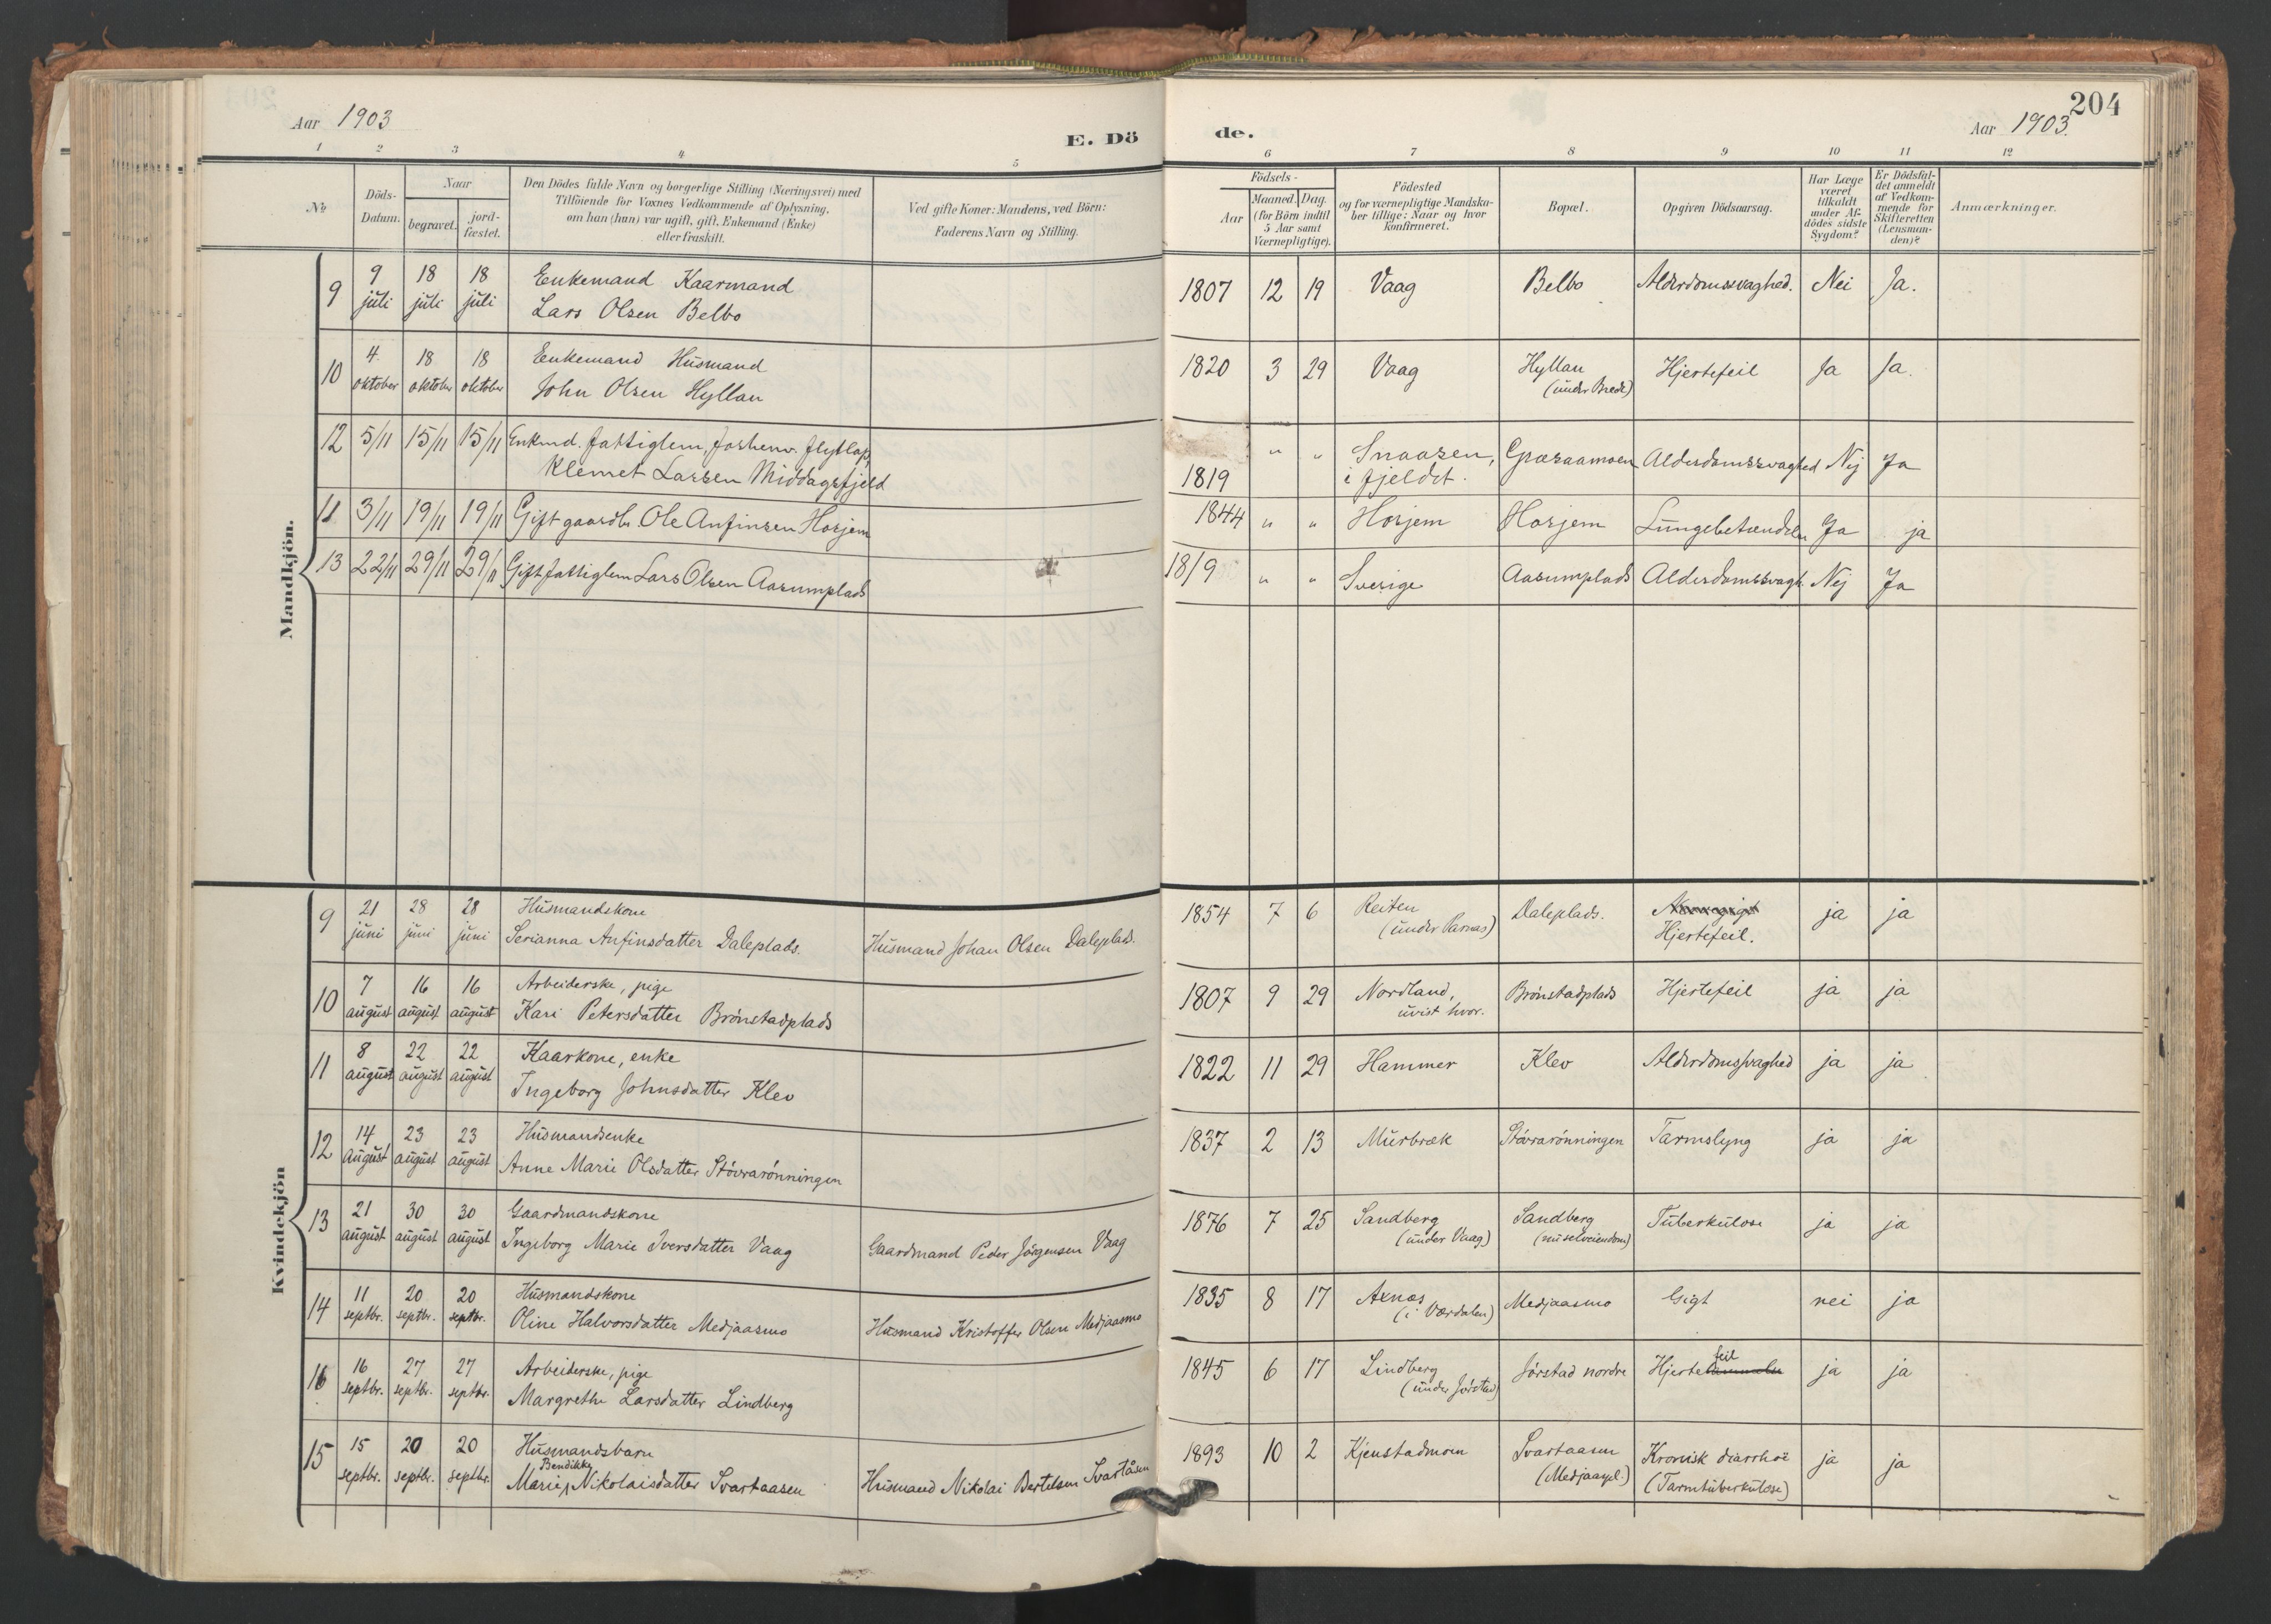 Aar 1903
E. Dö
de.
Aar 1903.
204
1 2 3 4 5 6 7 8 9 10 11 12
№
Döds-
Datum.
Naar
begravet.
jord-
fæstet.
Den Dödes fulde Navn og borgerlige Stilling (Næringsvei) med
Tilföiende for Voxnes Vedkommende af Oplysning,
om han (hun) var ugift, gift, Enkemand (Enke)
eller fraskilt.
Ved gifte Koner: Mandens, ved Börn:
Faderens Navn og Stilling.
Födsels-
Aar
Maaned. Dag.
(for Börn indtil
5 Aar samt
Værnepligtige).
Födested
og for værnepligtige Mandska-
ber tillige: Naar og hvor
konfirmeret.
Bopæl.
Opgiven Dödsaarsag.
Har Læge
været
tilkaldt
under Af-
dödes sidste
Sygdom?
Er Dödsfal-
det anmeldt
af Vedkom-
mende for
Skifteretten
(Lensman-
den)?
Anmærkninger.
Mandkjön.
9 9 18 18 Enkemand Kaarmand
juli juli juli Lars Olsen Belbo
1807 12 19 Vaag Belbo Alderdomssvaghed. Nei Ja.
10 4. 18 18 Enkemand Husmand
oktober oktober oktober John Olsen Hyllan
1820 3 29 Vaag Hyllan Hjertefeil Ja Ja.
(under Brede)
12 5/11 15/11 15/11 Enkmd. fattiglem, forhenv. flytlap,
Klemet Larsen Middagsfjeld
1819 " " Snaasen, Græsaamoen Alderdomssvaghed Nej Ja
i fjeldet.
11 3/11 19/11 19/11 Gift gaardbr. Ole Anfinsen Horjem
1844 " " Horjem Horjem Lungebetændelse Ja ja
13 22/11 29/11 29/11 Gift fattiglem Lars Olsen Aasumplads
1819 " " Sverige Aasumplads Alderdomssvagh. Nej Ja
Kvindekjön
9 21 28 28 Husmandskone
juni juni juni Serianna Anfinsdatter Daleplads. Husmand Johan Olsen Daleplads.
1854 7 6 Reiten Daleplads. ja ja
(under Parnas) Hjertefeil.
10 7 16 16 Arbeiderske, pige
august august august Kari Petersdatter Brönstadplads
1807 9 29 Nordland, Brönstadplads Hjertefeil ja ja
uvist hvor.
11 8 22 22 Kaarkone, enke
august august august Ingeborg Johnsdatter Klev
1822 11 29 Hammer Klev Alderdomssvaghed ja ja
12 14 23 23 Husmandsenke
august august august Anne Marie Olsdatter Stövrarönningen
1837 2 13 Murbræk Stövrarönningen Tarmslyng ja ja
13 21 30 30 Gaardmandskone
august august august Ingeborg Marie Iversdatter Vaag Gaardmand Peder Jörgensen Vaag
1876 7 25 Sandberg Sandberg Tuberkulose ja ja
(under Vaag) (nu selveiendom)
14 11 20 20 Husmandskone
septbr. septbr. septbr. Oline Halvorsdatter Medjaasmo Husmand Kristoffer Olsen Medjaasmo
1835 8 17 Axnæs Medjaasmo Gigt nei ja
(i Værdalen)
16 16 27 27 Arbeiderske, pige
septbr. septbr. septbr. Margrethe Larsdatter Lindberg
1845 6 17 Lindberg Jörstad nordre Hjertefeil ja ja
(under Jörstad)
15 15 20 20 Husmandsbarn
Bendikke
septbr. septbr. septbr. Marie Nikolaisdatter Svartaasen Husmand Nikolai Bertelsen Svartåsen
1893 10 2 Kjenstadmoen Svartaasen Kronisk diarrhoë ja ja
(Medjaapl.) (Tarmtuberkulose)